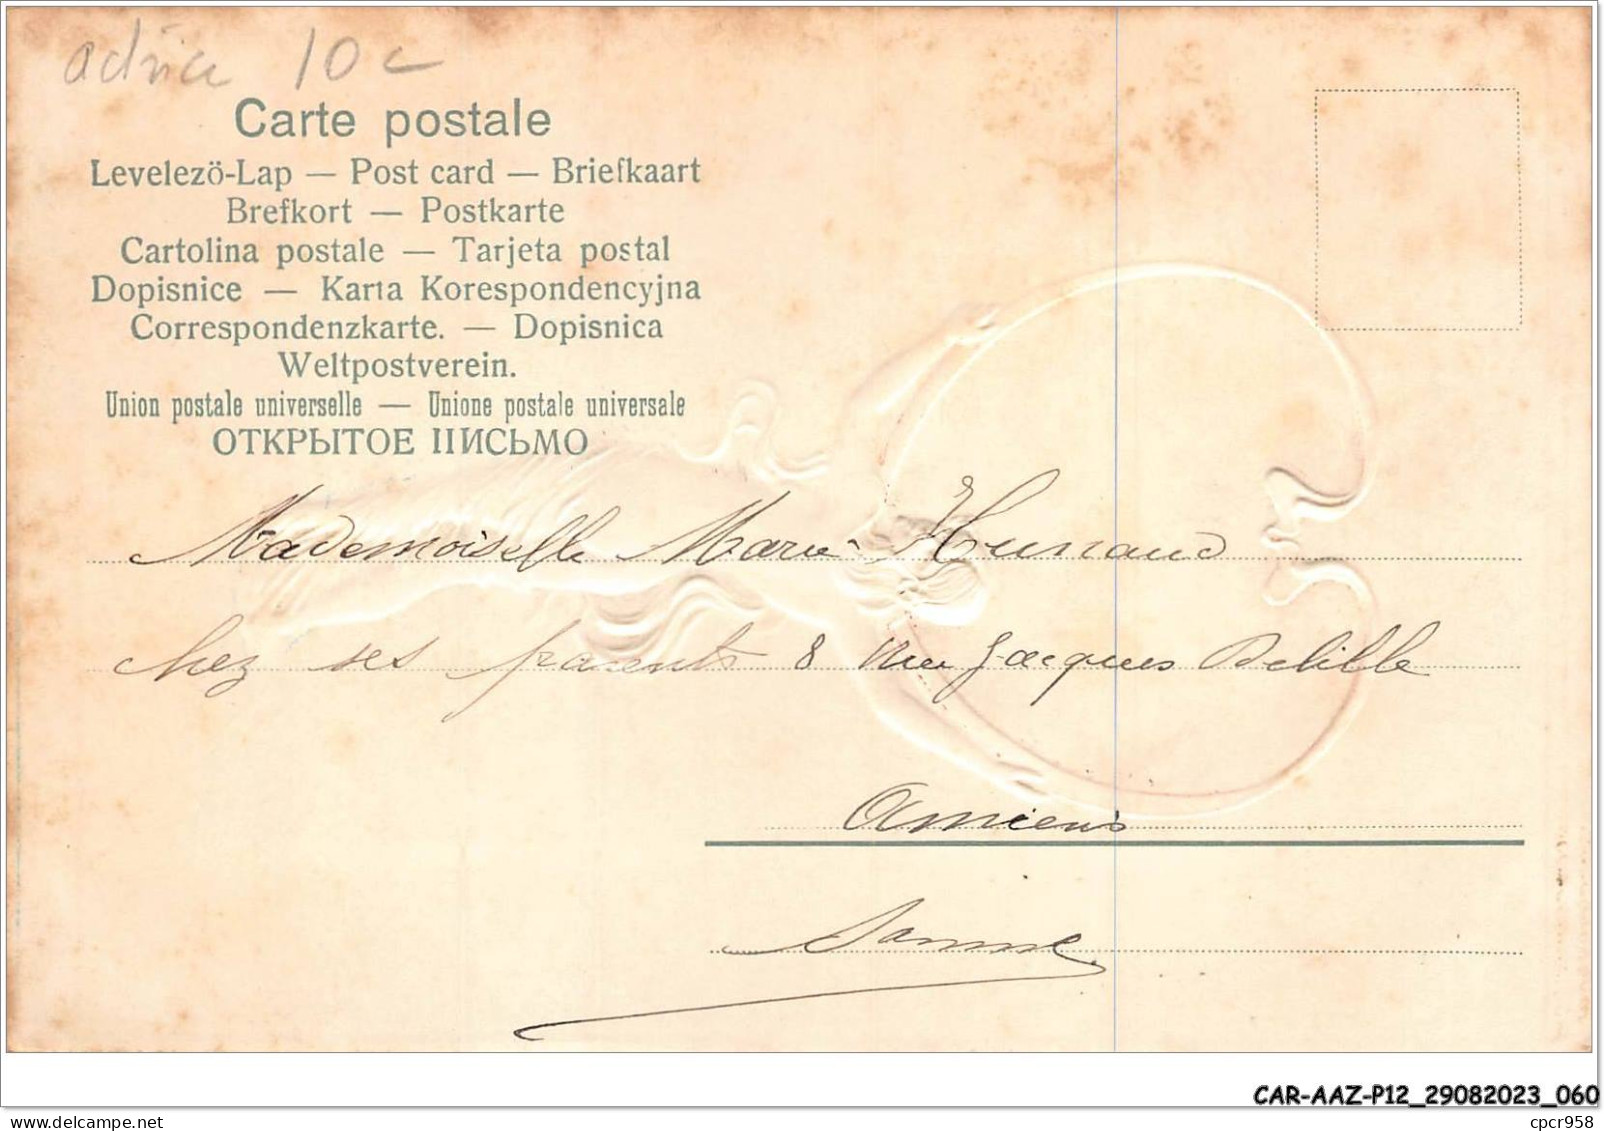 10 c
Carte postale
Levelezö-Lap — Post card — Briefkaart
Brefkort — Postkarte
Cartolina postale — Tarjeta postal
Dopisnice — Karta Korespondencyjna
Correspondenzkarte. — Dopisnica
Weltpostverein.
Union postale universelle — Unione postale universale
ОТКРЫТОЕ ПИСЬМО
Mademoiselle Marie Hunaud
chez ses parents 8 rue Jacques Delille
Amiens
Somme
CAR-AAZ-P12_29082023_060
delcampe.net
cpcr958